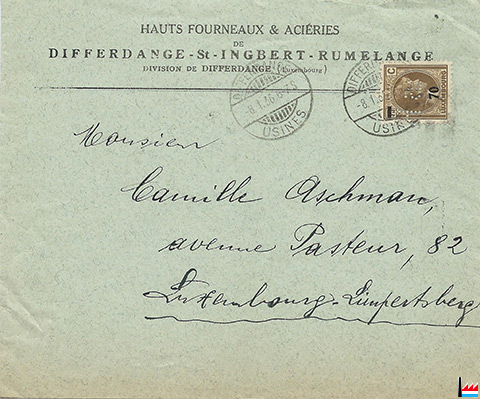 HAUTS FOURNEAUX & ACIÉRIES
DE
DIFFERDANGE-St-INGBERT-RUMELANGE
DIVISION DE DIFFERDANGE (Luxembourg)
USINES
USINES
70
Monsieur
Camille Aschman,
avenue Pasteur, 82
Luxembourg-Limpertsberg